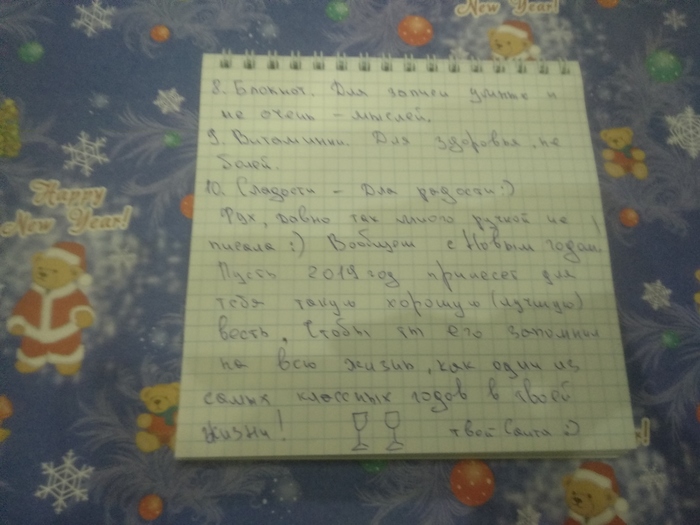 New Year!
8. Блокнот. Для записи умных и
не очень - мыслей.
9. Витаминки. Для здоровья, не
болей.
10. Сладости - Для радости :)
Фух, давно так много ручкой не
писала :) Вообщем с Новым годом!
Пусть 2019 год принесет для
тебя такую хорошую (лучшую)
весть, чтобы ты его запомнил
на всю жизнь, как один из
самых классных годов в твоей
жизни!
твой Санта :)
Happy
New Year!